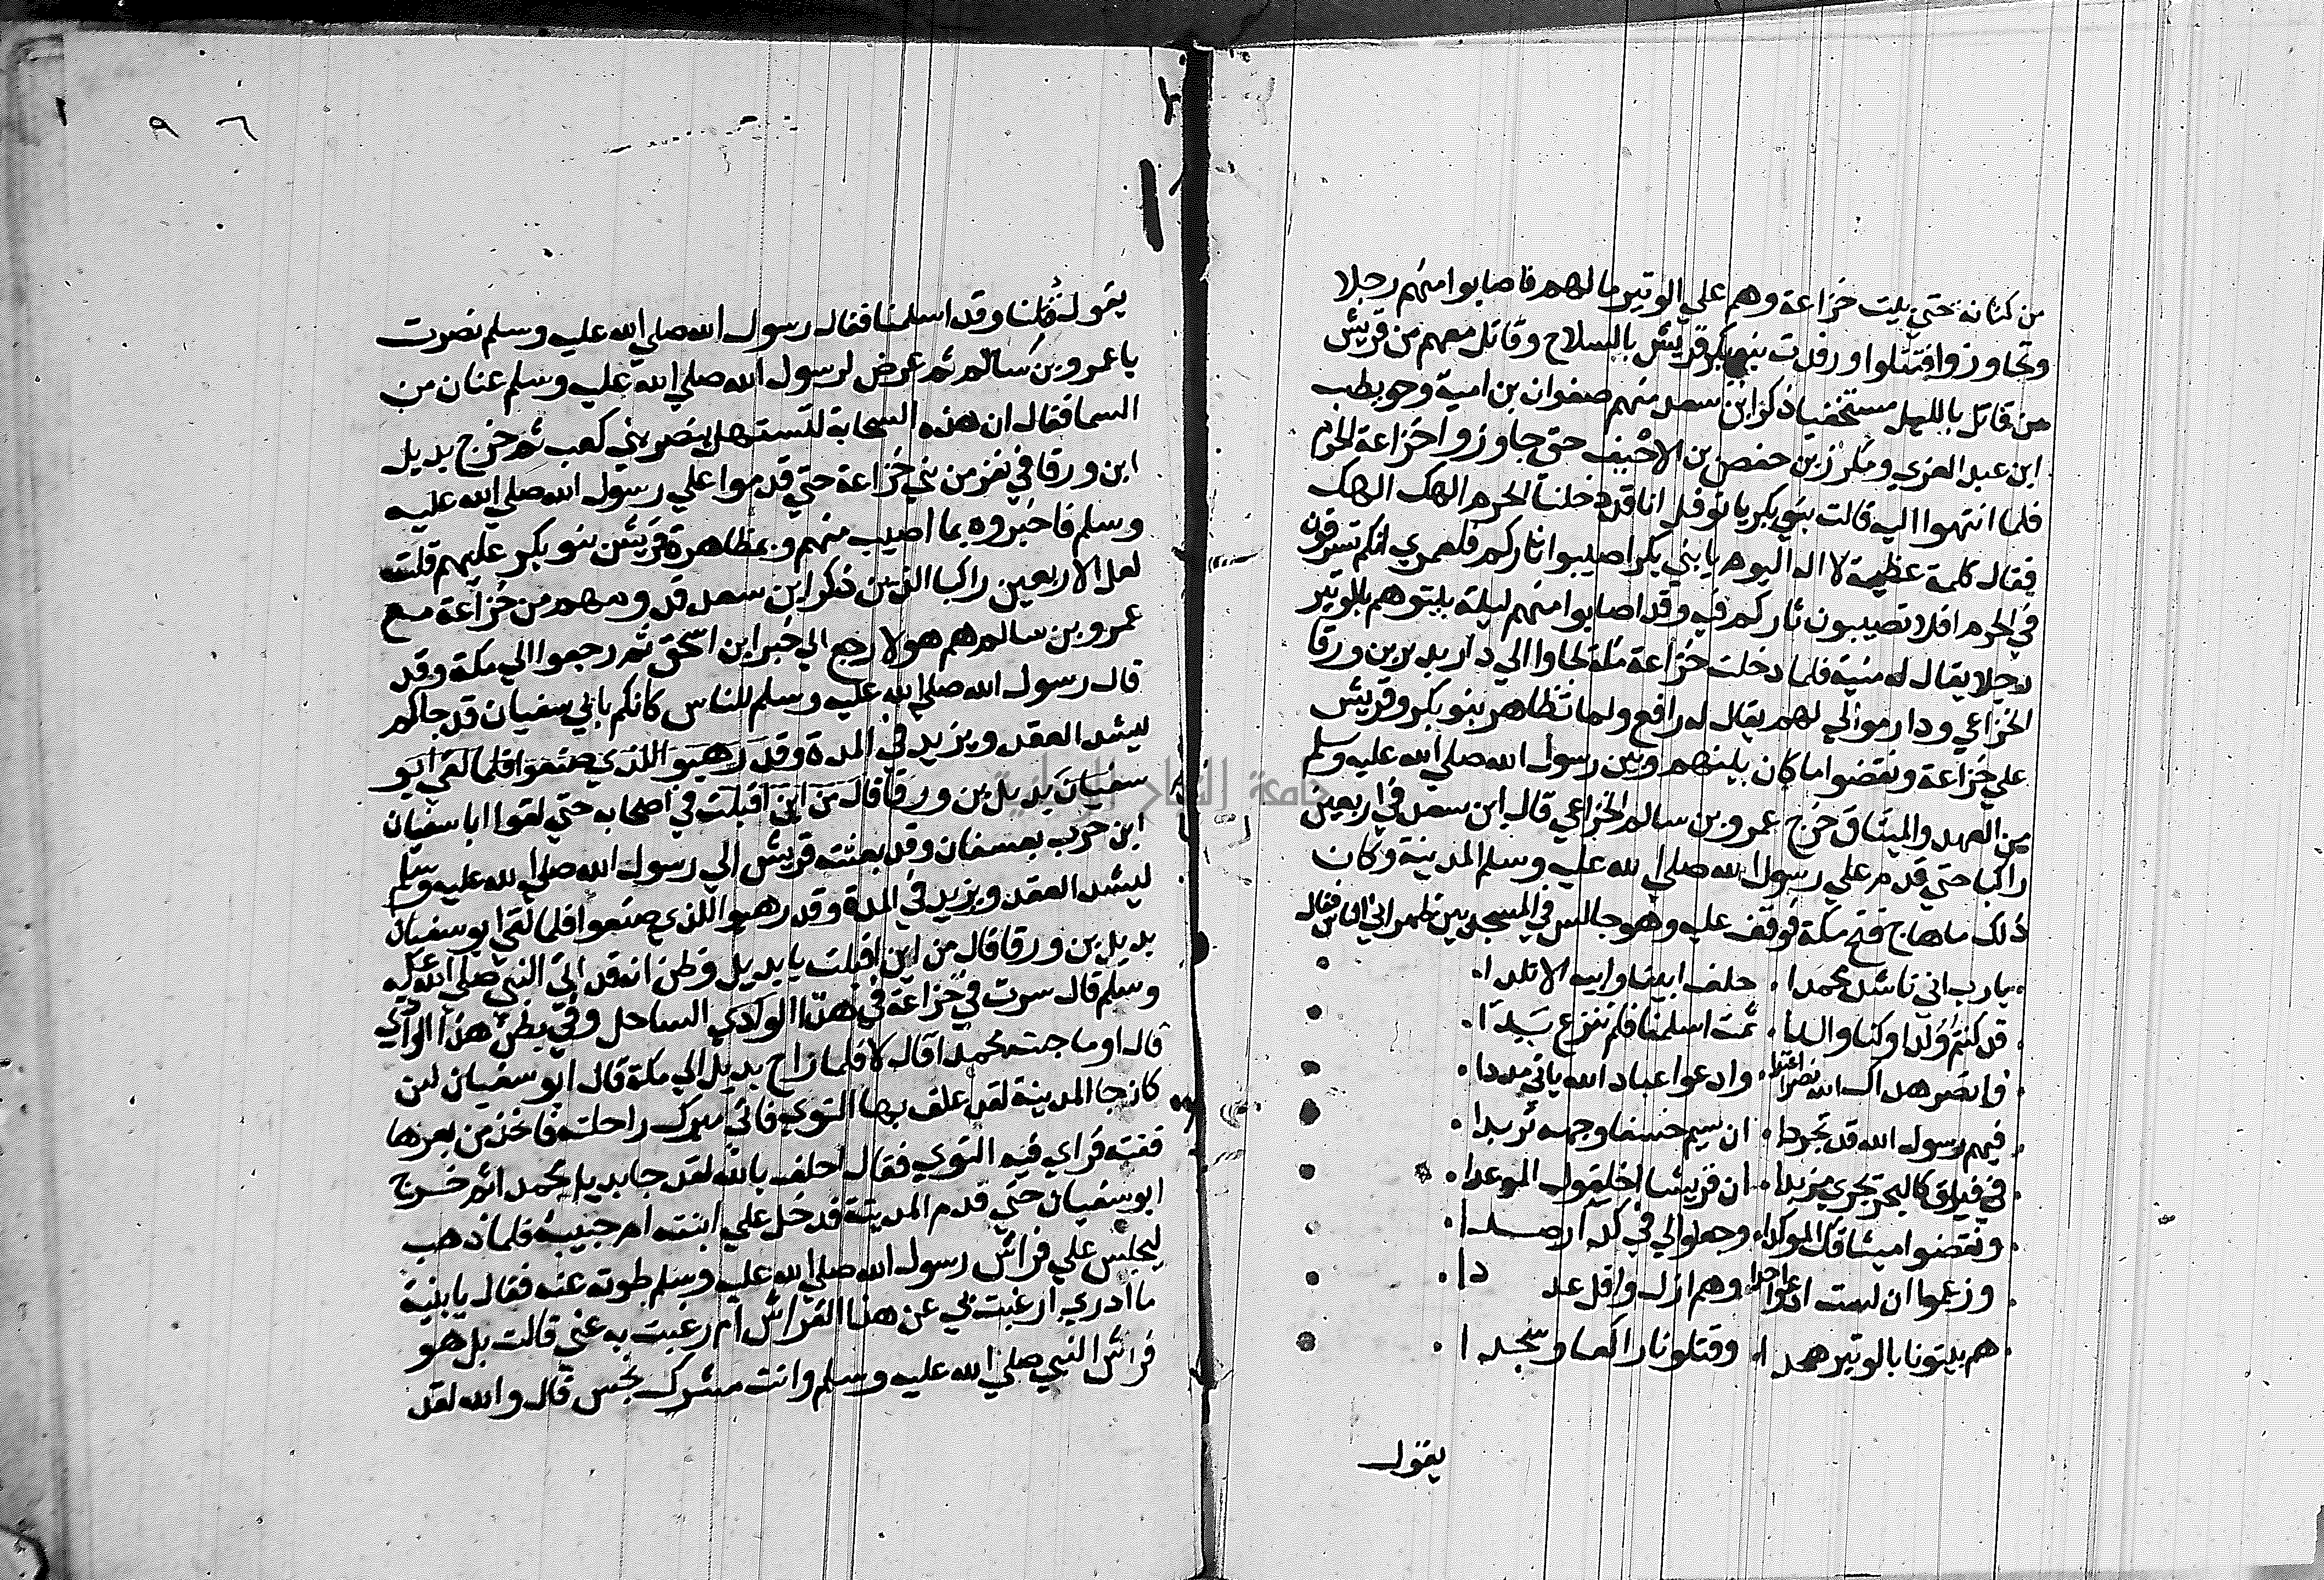 من كنانة حتي بيت خزاعة وهم علي الوتير ما لهم فاصابوا منهم رجلا
وتحاوزوا واقتتلوا ورفدت بنو بكر قريش بالسلاح وقاتل معهم من قريش
من قاتل بالليل مستخفيا ذكر ابن سعد منهم صفوان بن امية وحويطب
ابن عبد العزي ومكرز بن حفص بن الاخيف حتي حاوزوا خزاعة الحرم
فلما انتهوا اليه قالت بنو بكر يا نوفل انا قد دخلنا الحرم الهك الهك
فقال كلمة عظيمة لا اله اليوم يا بني بكر اصيبوا ثاركم فلعمري انكم تسرقون
في الحرم افلا تصيبون ثاركم فيه وقد اصابوا منهم ليلة بيتوهم بالوتير
رجلا يقال له منبه فلما دخلت خزاعة مكة لجاوا الي دار بديل بن ورقا
الخزاعي ودار موالي لهم يقال له رافع ولما تظاهر بنو بكر وقريش
علي خزاعة ونقضوا ما كان بينهم وبين رسول الله صلي الله عليه وسلم
من العهد والميثاق خرج عمرو بن سالم الخزاعي قال ابن سعد في اربعين
راكبا حتي قدم علي رسول الله صلي الله عليه وسلم المدينة وكان
ذلك ما هاج فتح مكة فوقف عليه وهو جالس في المسجد بين ظهراني الناس فقال
يا رب اني ناشد محمدا . حلف ابينا وابيه الاتلدا .
قد كنتم ولدا وكنا والدا . ثمت اسلمنا فلم ننزع يدا .
فانصر هداك الله نصرا اعتدا . وادعوا عباد الله ياتي مددا .
فيهم رسول الله قد تجردا . ان سيم خسفا وجهه تربدا .
في فيلق كالبحر تجري مزبدا . ان قريشا اخلفوك الموعدا .
ونقضوا ميثاقك الموكدا . وجعلوا لي في كدا رصدا .
وزعموا ان لست ادعوا احدا . وهم اذل واقل عددا .
هم بيتونا بالوتير هجدا . وقتلونا راكعا وسجدا .
يقول
٩٦
يقول قتلنا وقد اسلمنا فقال رسول الله صلي الله عليه وسلم نصرت
يا عمرو بن سالم ثم عرض لرسول الله صلي الله عليه وسلم عنان من
السما فقال ان هذه السحابة لتستهل بنصر بني كعب ثم خرج بديل
ابن ورقا في نفر من بني خزاعة حتي قدموا علي رسول الله صلي الله عليه
وسلم فاخبروه بما اصيب منهم وبمظاهرة قريش بنو بكر عليهم قلت
لعل الاربعين راكبا الذين ذكر ابن سعد قدومهم من خزاعة مع
عمرو بن سالم هم هولا رجع الي خبر ابن اسحق ثم رجعوا الي مكة وقد
قال رسول الله صلي الله عليه وسلم للناس كانكم بابي سفيان قد جاكم
ليشد العقد ويزيد في المدة وقد رهبوا الذي صنعوا فلما لقي ابو
سفيان بديل بن ورقا قال من اين اقبلت في اصحابه حتي لقوا ابا سفيان
ابن حرب بعسفان وقد بعثته قريش الي رسول الله صلي الله عليه وسلم
ليشد العقد ويزيد في المدة وقد رهبوا الذي صنعوا فلما لقي ابو سفيان
بديل بن ورقا قال من اين اقبلت يا بديل وظن انه قد اتي النبي صلي الله عليه
وسلم قال سرت في خزاعة في هذا الوادي الساحل وفي بطن هذا الوادي
قال او ما جيت محمدا قال لا فلما راح بديل الي مكة قال ابو سفيان لين
كان جا المدينة لقد علف بها النوي فاتي مبرك راحلته فاخذ من بعرها
ففته فراي فيه النوي فقال احلف بالله لقد جا بديل محمدا ثم خرج
ابو سفيان حتي قدم المدينة فدخل علي ابنته ام حبيبة فلما ذهب
ليجلس علي فراش رسول الله صلي الله عليه وسلم طوته عنه فقال يا بنية
ما ادري ارغبت بي عن هذا الفراش ام رغبت به عني قالت بل هو
فراش النبي صلي الله عليه وسلم وانت مشرك نجس قال والله لقد
جامعة النجاح الوطنية